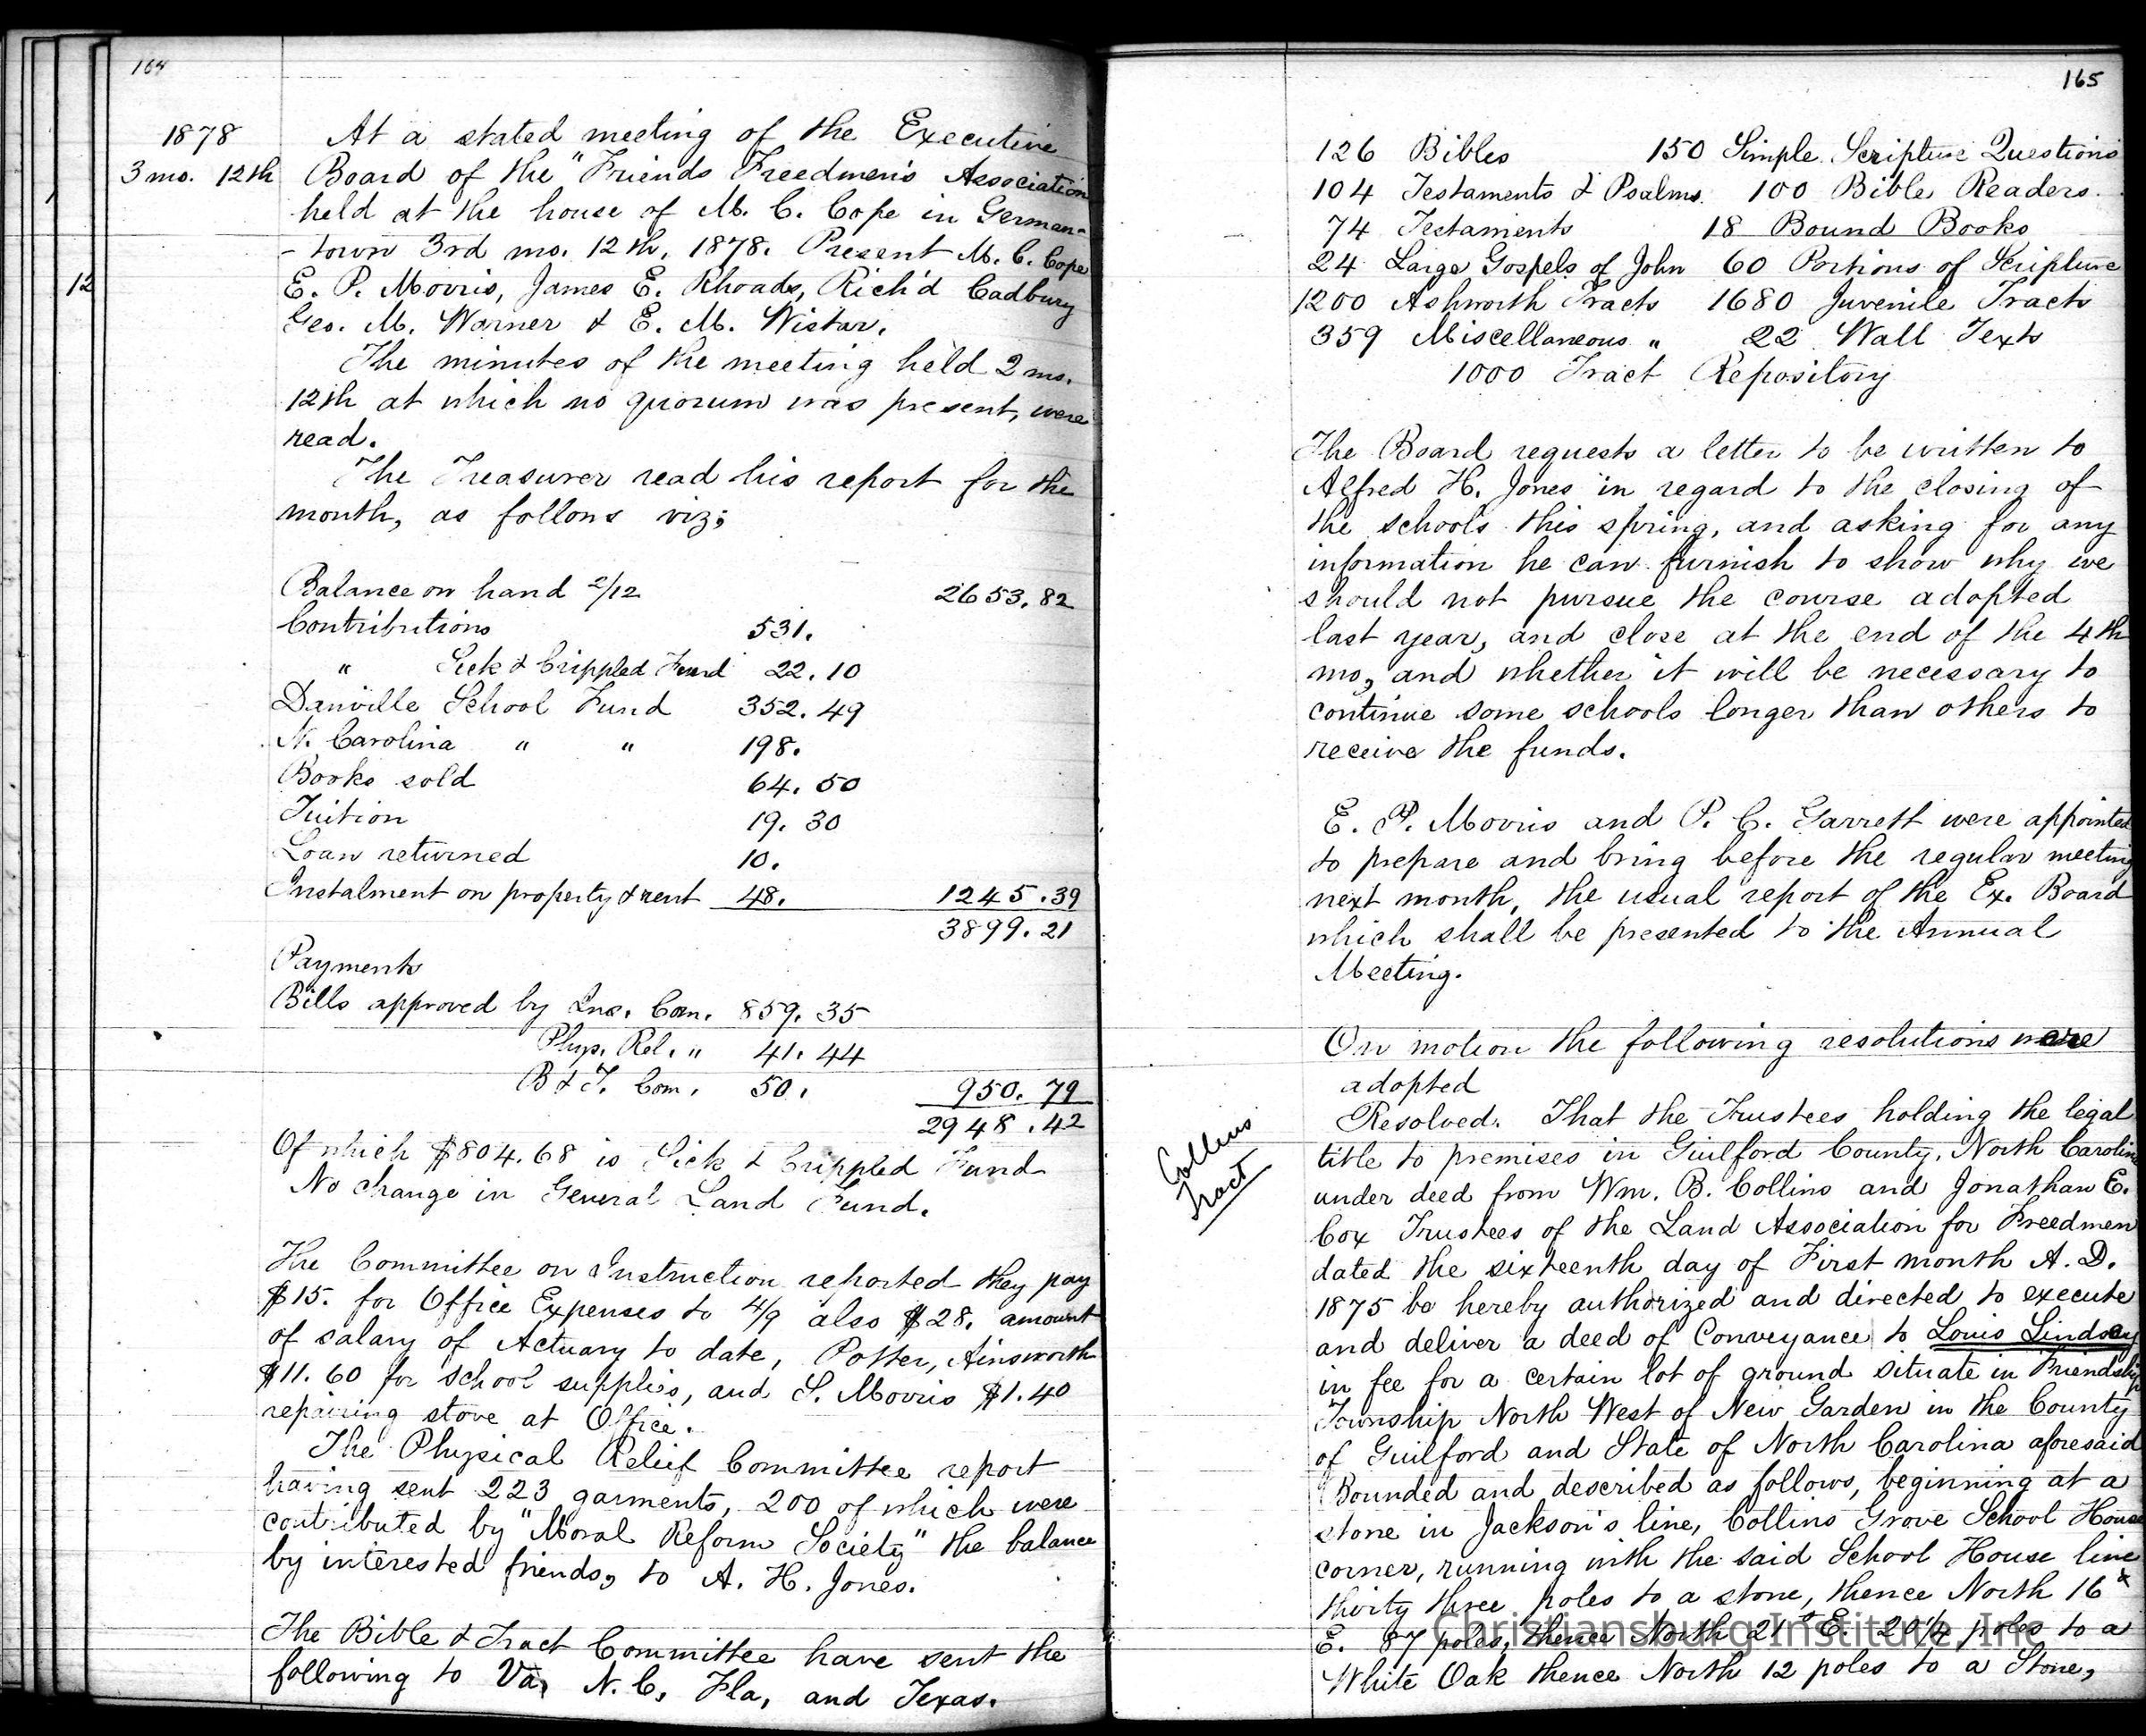 164
1878
3 mo. 12th
At a stated meeting of the Executive
Board of the "Friends Freedmen's Association
held at the house of M. C. Cope in German-
-town 3rd mo. 12th, 1878. Present M. C. Cope
E. P. Morris, James E. Rhoads, Rich'd Cadbury
Geo. M. Warner & E. M. Wistar.
The minutes of the meeting held 2 mo.
12th at which no quorum was present, were
read.
The Treasurer read his report for the
month, as follows viz;
Balance on hand 2/12 2653.82
Contributions 531.
" Sick & Crippled Fund 22.10
Danville School Fund 352.49
N. Carolina " " 198.
Books sold 64.50
Tuition 19.30
Loan returned 10.
Instalment on property & rent 48. 1245.39
3899.21
Payments
Bills approved by Ins. Com. 859.35
Phys. Rel. " 41.44
B & T. Com. 50. 950.79
2948.42
Of which $804.68 is Sick & Crippled Fund
No change in General Land Fund.
The Committee on Instruction reported they pay
$15. for Office Expenses to 4/9 also $28. amount
of salary of Actuary to date, Potter, Ainsworth
$11.60 for school supplies, and S. Morris $1.40
repairing stove at Office.
The Physical Relief Committee report
having sent 223 garments, 200 of which were
contributed by "Moral Reform Society" the balance
by interested friends, to A. H. Jones.
The Bible & Tract Committee have sent the
following to Va, N. C, Fla, and Texas.
12
165
126 Bibles 150 Simple Scripture Questions
104 Testaments & Psalms. 100 Bible Readers
74 Testaments 18 Bound Books
24 Large Gospels of John 60 Portions of Scripture
1200 Ashworth Tracts 1680 Juvenile Tracts
359 Miscellaneous " 22 Wall Texts
1000 Tract Repository
The Board requests a letter to be written to
Alfred H. Jones in regard to the closing of
the schools this spring, and asking for any
information he can furnish to show why we
should not pursue the course adopted
last year, and close at the end of the 4th
mo, and whether it will be necessary to
continue some schools longer than others to
receive the funds.
E. P. Morris and P. C. Garrett were appointed
to prepare and bring before the regular meeting
next month, the usual report of the Ex. Board
which shall be presented to the Annual
Meeting.
On motion the following resolutions were
adopted
Collins
Tract
Resolved. That the Trustees holding the legal
title to premises in Guilford County, North Carolina
under deed from Wm. B. Collins and Jonathan E.
Cox Trustees of the Land Association for Freedmen
dated the sixteenth day of First month A. D.
1875 be hereby authorized and directed to execute
and deliver a deed of Conveyance to Louis Lindsay
in fee for a certain lot of ground situate in Friendship
Township North West of New Garden in the County
of Guilford and State of North Carolina aforesaid
Bounded and described as follows, beginning at a
stone in Jackson's line, Collins Grove School House
corner, running with the said School House line
thirty three poles to a stone, thence North 16°
E. 87 poles, thence North 21° E. 20 1/4 poles to a
White Oak thence North 12 poles to a Stone,
Christiansburg Institute, Inc